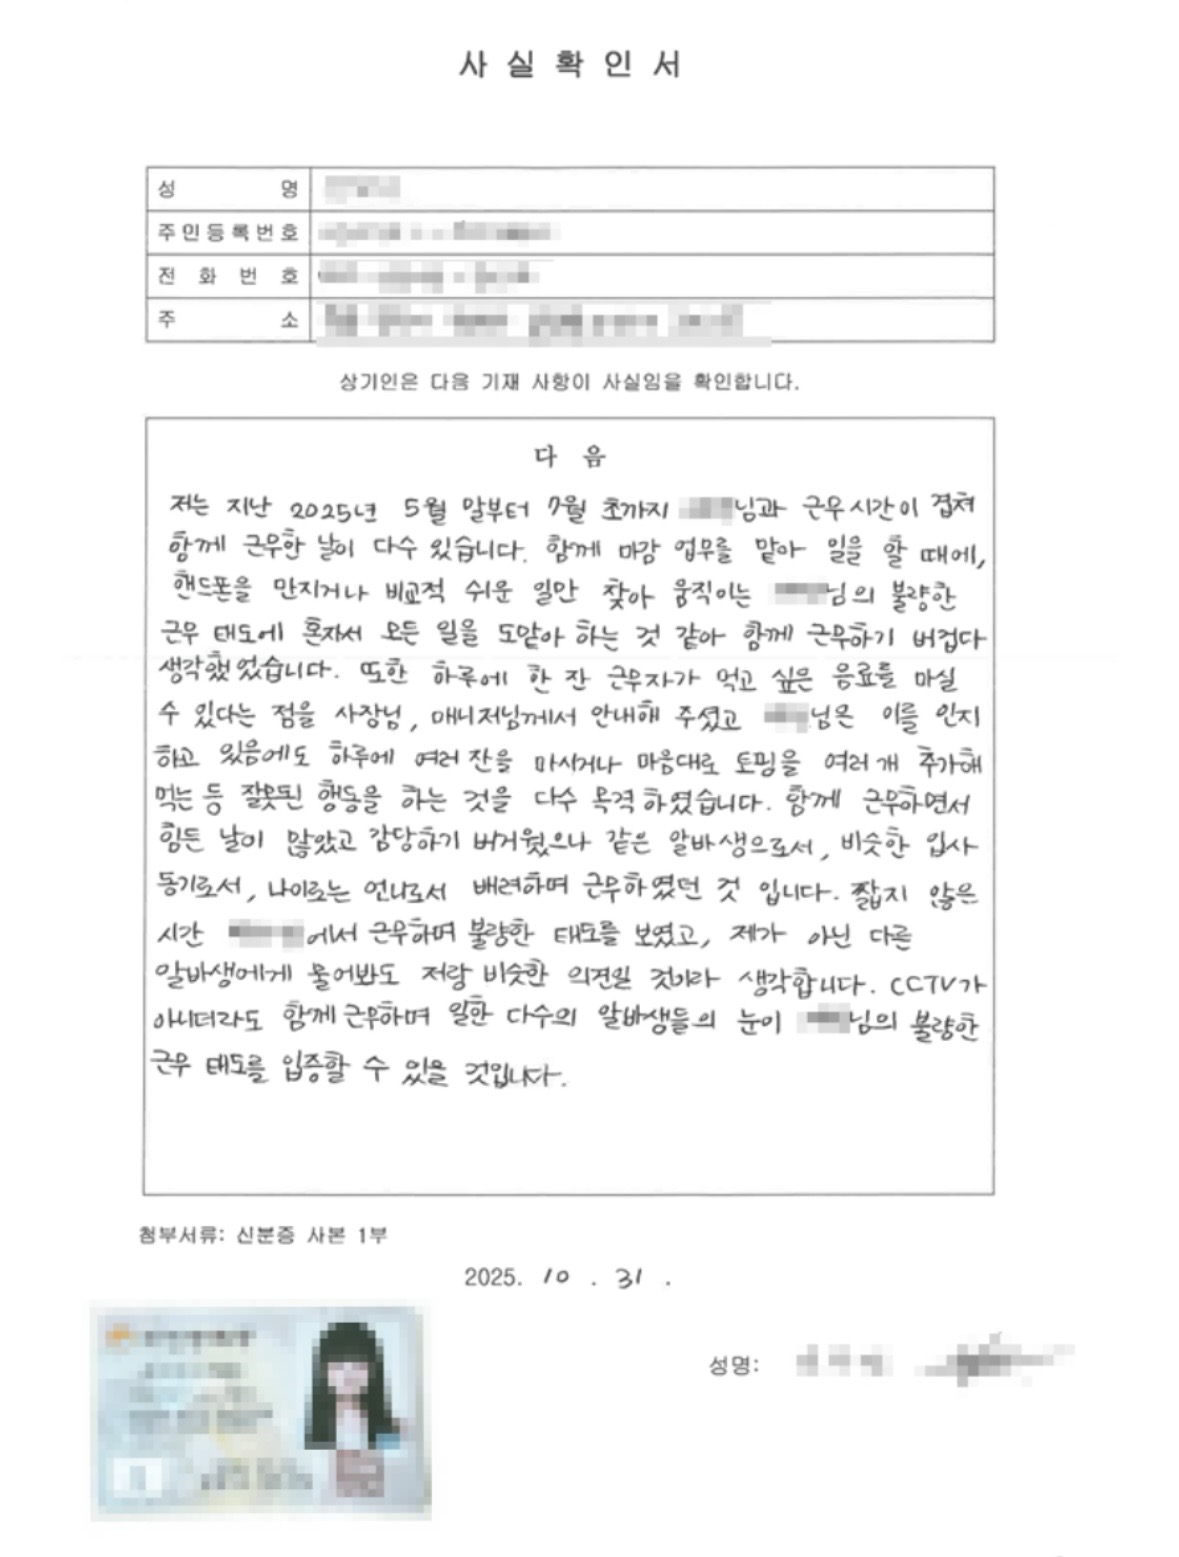 사 실 확 인 서
성 명
주민등록번호
전 화 번 호
주 소
상기인은 다음 기재 사항이 사실임을 확인합니다.
다 음
저는 지난 2025년 5월 말부터 7월 초까지 님과 근무시간이 겹쳐
함께 근무한 날이 다수 있습니다. 함께 마감 업무를 맡아 일을 할 때에,
핸드폰을 만지거나 비교적 쉬운 일만 찾아 움직이는 님의 불량한
근무 태도에 혼자서 모든 일을 도맡아 하는 것 같아 함께 근무하기 버겁다
생각했었습니다. 또한 하루에 한 잔 근무자가 먹고 싶은 음료를 마실
수 있다는 점을 사장님, 매니저님께서 안내해 주셨고 님은 이를 인지
하고 있음에도 하루에 여러 잔을 마시거나 마음대로 토핑을 여러개 추가해
먹는 등 잘못된 행동을 하는 것을 다수 목격하였습니다. 함께 근무하면서
힘든 날이 많았고 감당하기 버거웠으나 같은 알바생으로서, 비슷한 입사
동기로서, 나이로는 언니로서 배려하며 근무하였던 것 입니다. 짧지 않은
시간 에서 근무하며 불량한 태도를 보였고, 제가 아닌 다른
알바생에게 물어봐도 저랑 비슷한 의견일 것이라 생각합니다. CCTV가
아니더라도 함께 근무하며 일한 다수의 알바생들의 눈이 님의 불량한
근무 태도를 입증할 수 있을 것입니다.
첨부서류: 신분증 사본 1부
2025. 10 . 31 .
성명: